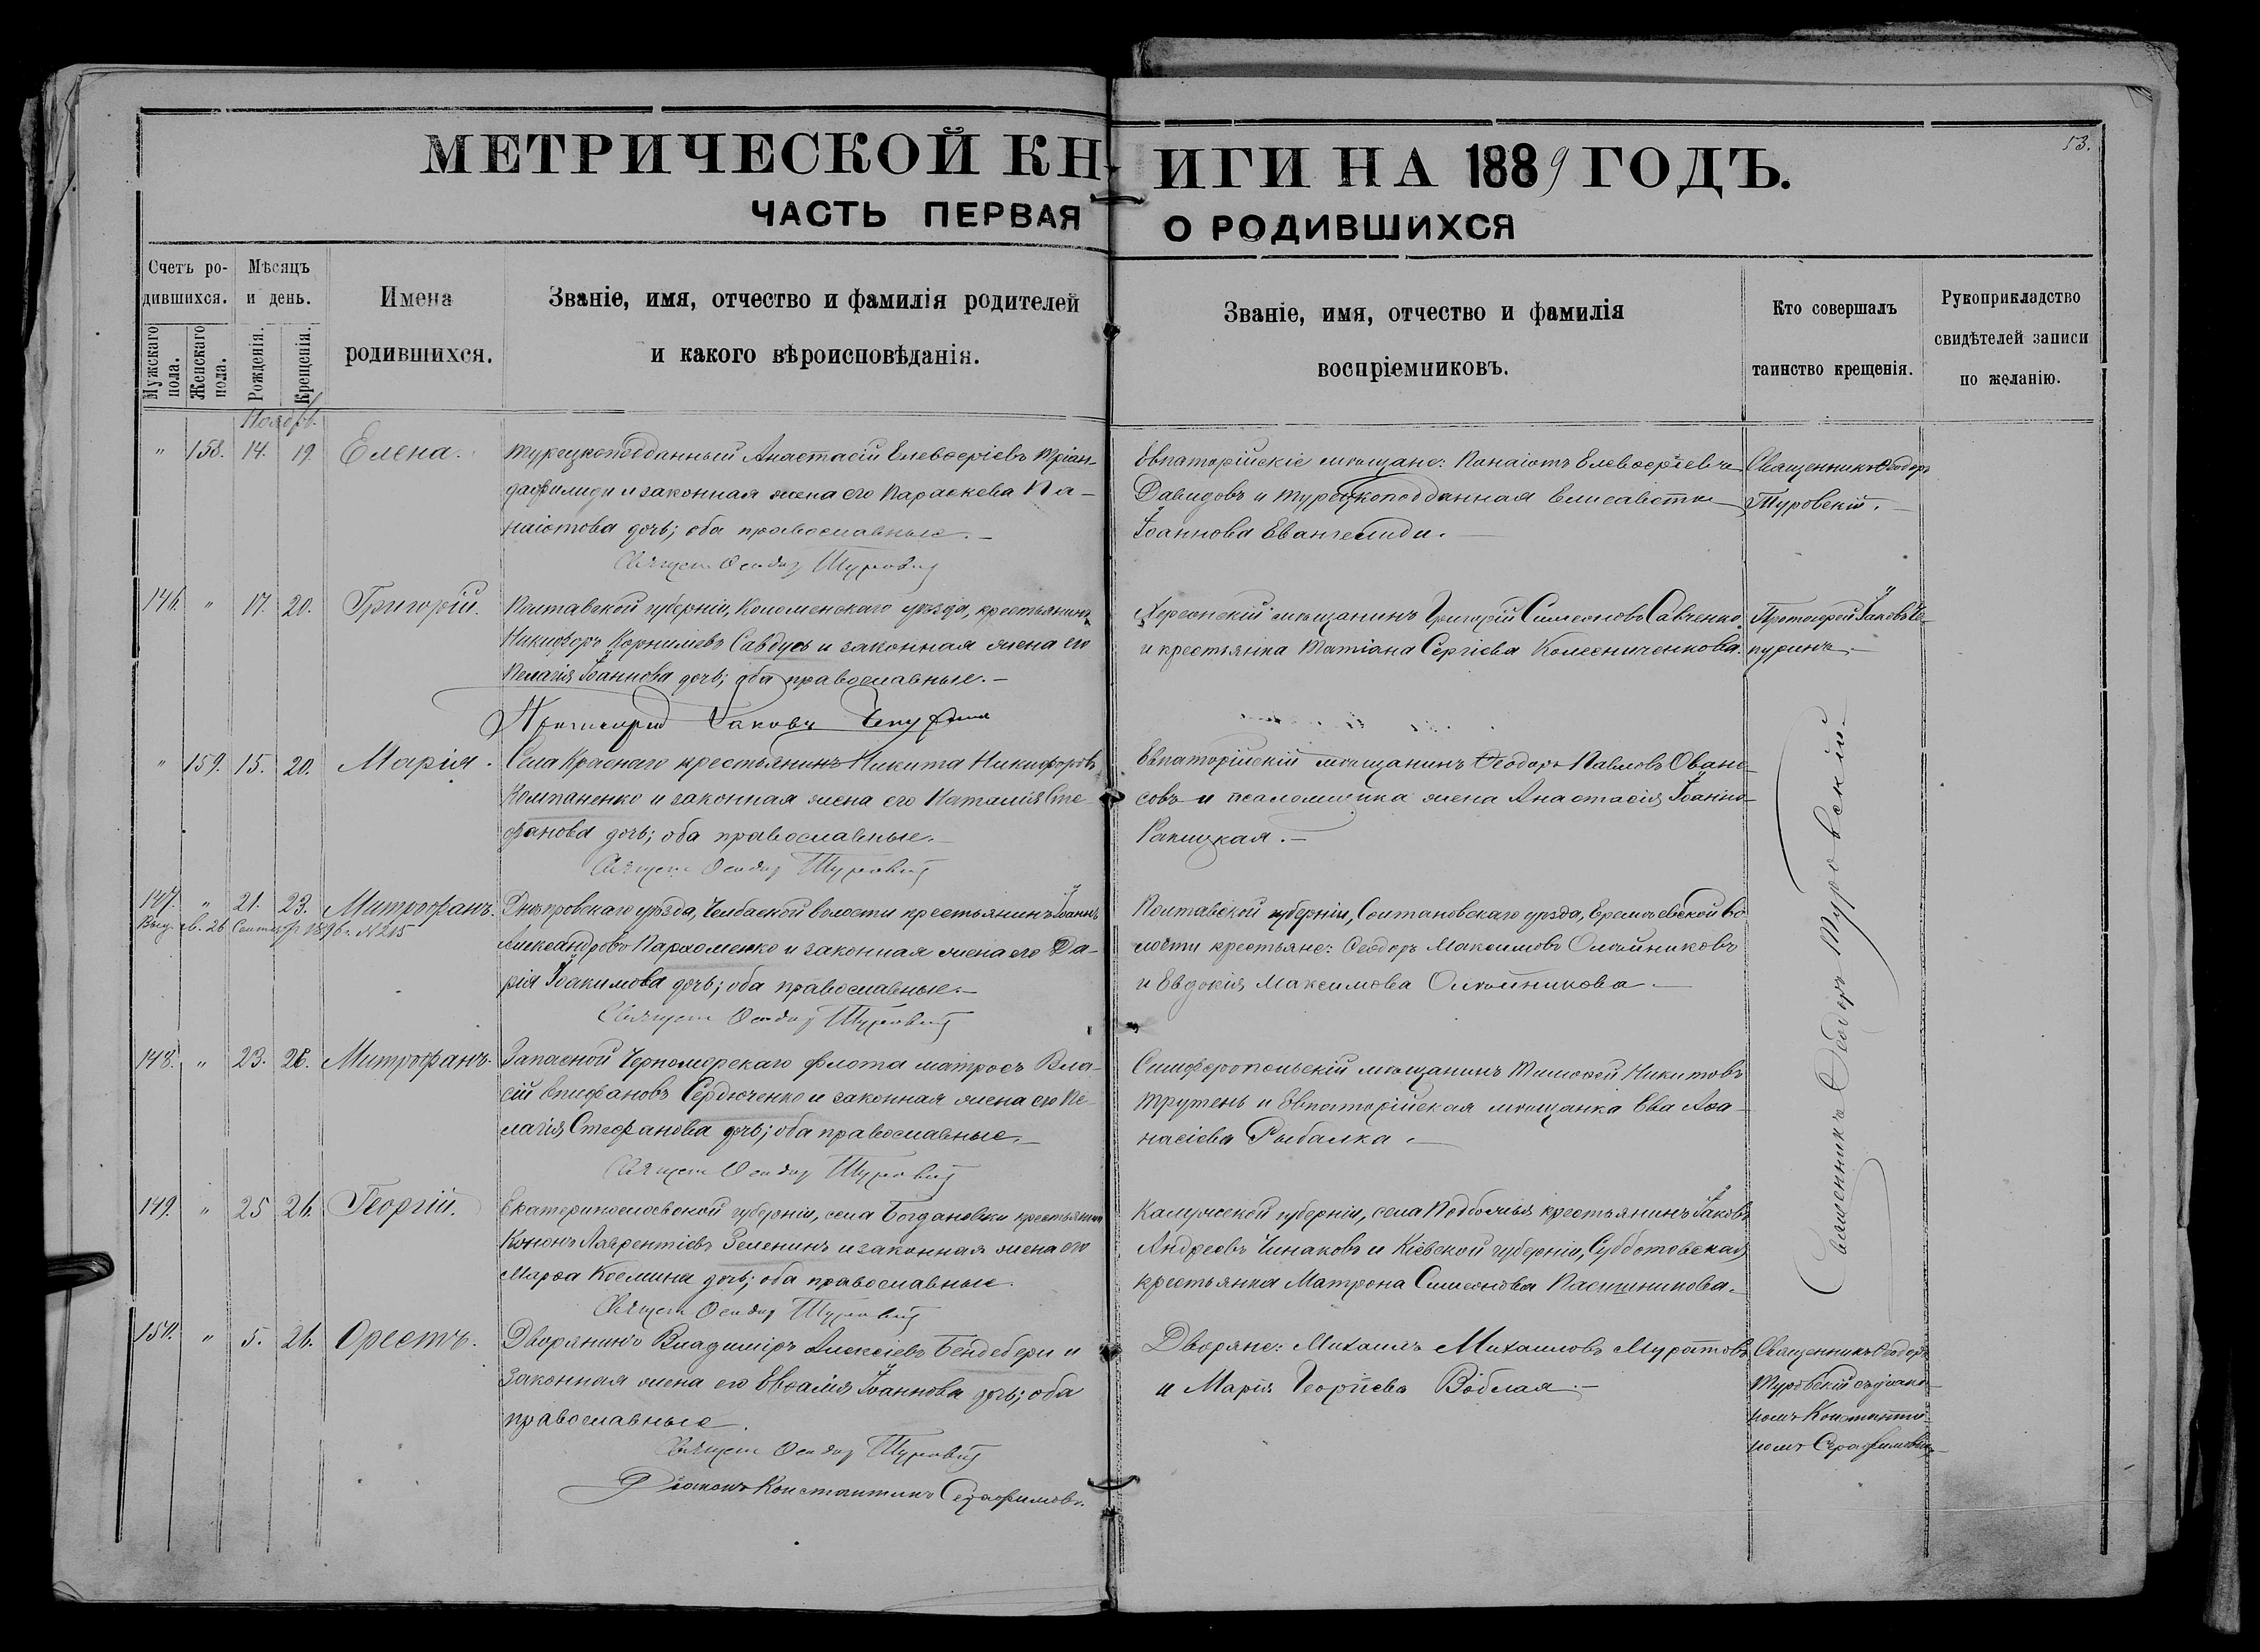 МЕТРИЧЕСКОЙ КНИГИ НА 1889 ГОДЪ.
53.
ЧАСТЬ ПЕРВАЯ О РОДИВШИХСЯ
Счетъ родившихся.
Мужскаго пола.
Женскаго пола.
Мѣсяцъ и день.
Рожденія.
Крещенія.
Имена родившихся.
Званіе, имя, отчество и фамилія родителей
и какого вѣроисповѣданія.
Званіе, имя, отчество и фамилія
воспріемниковъ.
Кто совершалъ
таинство крещенія.
Рукоприкладство
свидѣтелей записи
по желанію.
Ноябрь.
" 158. 14. 19. Елена.
Турецкоподданный Анастасій Елевѳеріевъ Тріан-
дафилиди и законная жена его Параскева Па-
наіотова дочь; оба православные.
Священ. Ѳеодор Туровскій
Евпаторійскіе мѣщане: Панаіотъ Елевѳеріевъ
Давидовъ и турецкоподданная Елисавета
Іоаннова Евангелиди.
Священникъ Ѳеодоръ
Туровскій.
146. " 17. 20. Григорій.
Полтавской губерніи,
уѣзда, крестьянинъ
Никифоръ Корниліевъ Савдусь и законная жена его
Пелагія Іоаннова дочь; оба православные.
Протоіерей Іаковъ Чепуринъ
Херсонскій мѣщанинъ Григорій Симеоновъ Савченко
и крестьянка Татіана Сергіева Колесниченкова.
Протоіерей Іаковъ Че-
пуринъ.
" 159. 15. 20. Марія.
Села Краснаго крестьянинъ Никита Никифоровъ
Компаненко и законная жена его Наталія Сте-
фанова дочь; оба православные.
Священ. Ѳеодор Туровскій
Евпаторійскій мѣщанинъ Ѳеодоръ Павловъ Ована-
совъ и псаломщика жена Анастасія Іоаннова
Ракицкая.
147. " 21. 23. Митрофанъ.
Выд. св. 26 Сентяб. 1896 г. № 215
Днѣпровскаго уѣзда, Челбаской волости крестьянинъ Іоаннъ
Александровъ Пархоменко и законная жена его Да-
рія Іоакимова дочь; оба православные.
Священ. Ѳеодор Туровскій
Полтавской губерніи,
уѣзда,
во-
лости крестьяне: Ѳеодоръ Максимовъ Олейниковъ
и Евдокія Максимова Олейникова.
Священникъ Ѳеодоръ Туровскій.
148. " 23. 26. Митрофанъ.
Запасной Черноморскаго флота матросъ Вла-
сій Епифановъ Сердюченко и законная жена его Пе-
лагія Стефанова дочь; оба православные.
Священ. Ѳеодор Туровскій
Симферопольскій мѣщанинъ Тимоѳей Никитовъ
Трутень и Евпаторійская мѣщанка Ева Аѳа-
насіева Рыбалка.
149. " 25 26. Георгій.
Екатеринославской губерніи, села Богдановки крестьянинъ
Кононъ Лаврентіевъ Зеленинъ и законная жена его
Марѳа Космина дочь; оба православные.
Священ. Ѳеодор Туровскій
Калужской губерніи, села
крестьянинъ Іаковъ
Андреевъ Чинаковъ и Кіевской губерніи, Субботовская
крестьянка Матрона Симеонова Пасешникова.
150. " 5. 26. Орестъ.
Дворянинъ Владиміръ Алексіевъ Бендебери и
законная жена его Евѳалія Іоаннова дочь; оба
православные.
Священ. Ѳеодор Туровскій
Діаконъ Константинъ Серафимовъ.
Дворяне: Михаилъ Михаиловъ Муратовъ
и Марія Георгіева Воблая.
Священникъ Ѳеодоръ
Туровскій съ діако-
номъ Константи-
номъ Серафимовымъ